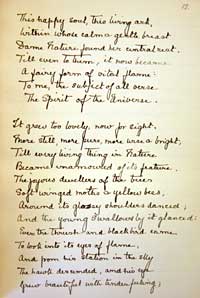 This happy soul, this living ark,
Within whose calm & gentle breast
Dame Nature found her central rest.
Till even to them, it now became
A fairy form of vital flame:
To me, the subject of all verse
The Spirit of the Universe.
It grew too lovely, now for sight,
More still, more pure, more
Till every living thing in Nature
Became enamoured of its feature.
The joyous dwellers of the trees
Soft winged moths & yellow bees,
Around its glossy shoulders danced;
And the young swallows by it glanced:
Even the thrush and blackbird came
To look into its eyes of flame,
And from his station in the sky
The hawk descended, and his eye
Grew beautiful with tender